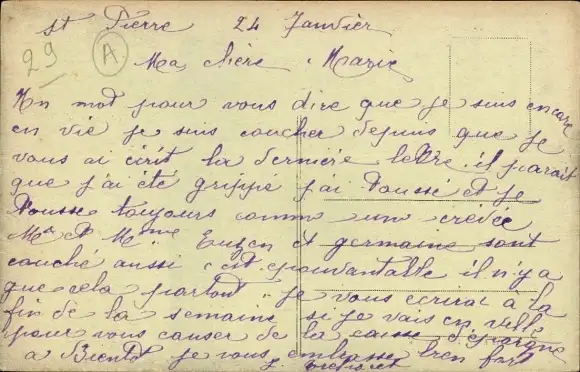 29 A
St Piérre 24 Janvier
Ma chère Marie
Un mot pour vous dire que je suis encore
en vie je suis coucher depuis que je
vous ai écrit la dernière lettre. il parait
que j'ai été grippé j'ai tousse et je
tousse toujours comme une crévée
Mr et Mme Eugen et germaine sont
couché aussi c'est epouvantable il n'y a
que cela partout je vous ecrirai à la
fin de la semaine si je vais en ville
pour vous causer de la caisse d'épargne
a Bientot je vous embrasse bien fort